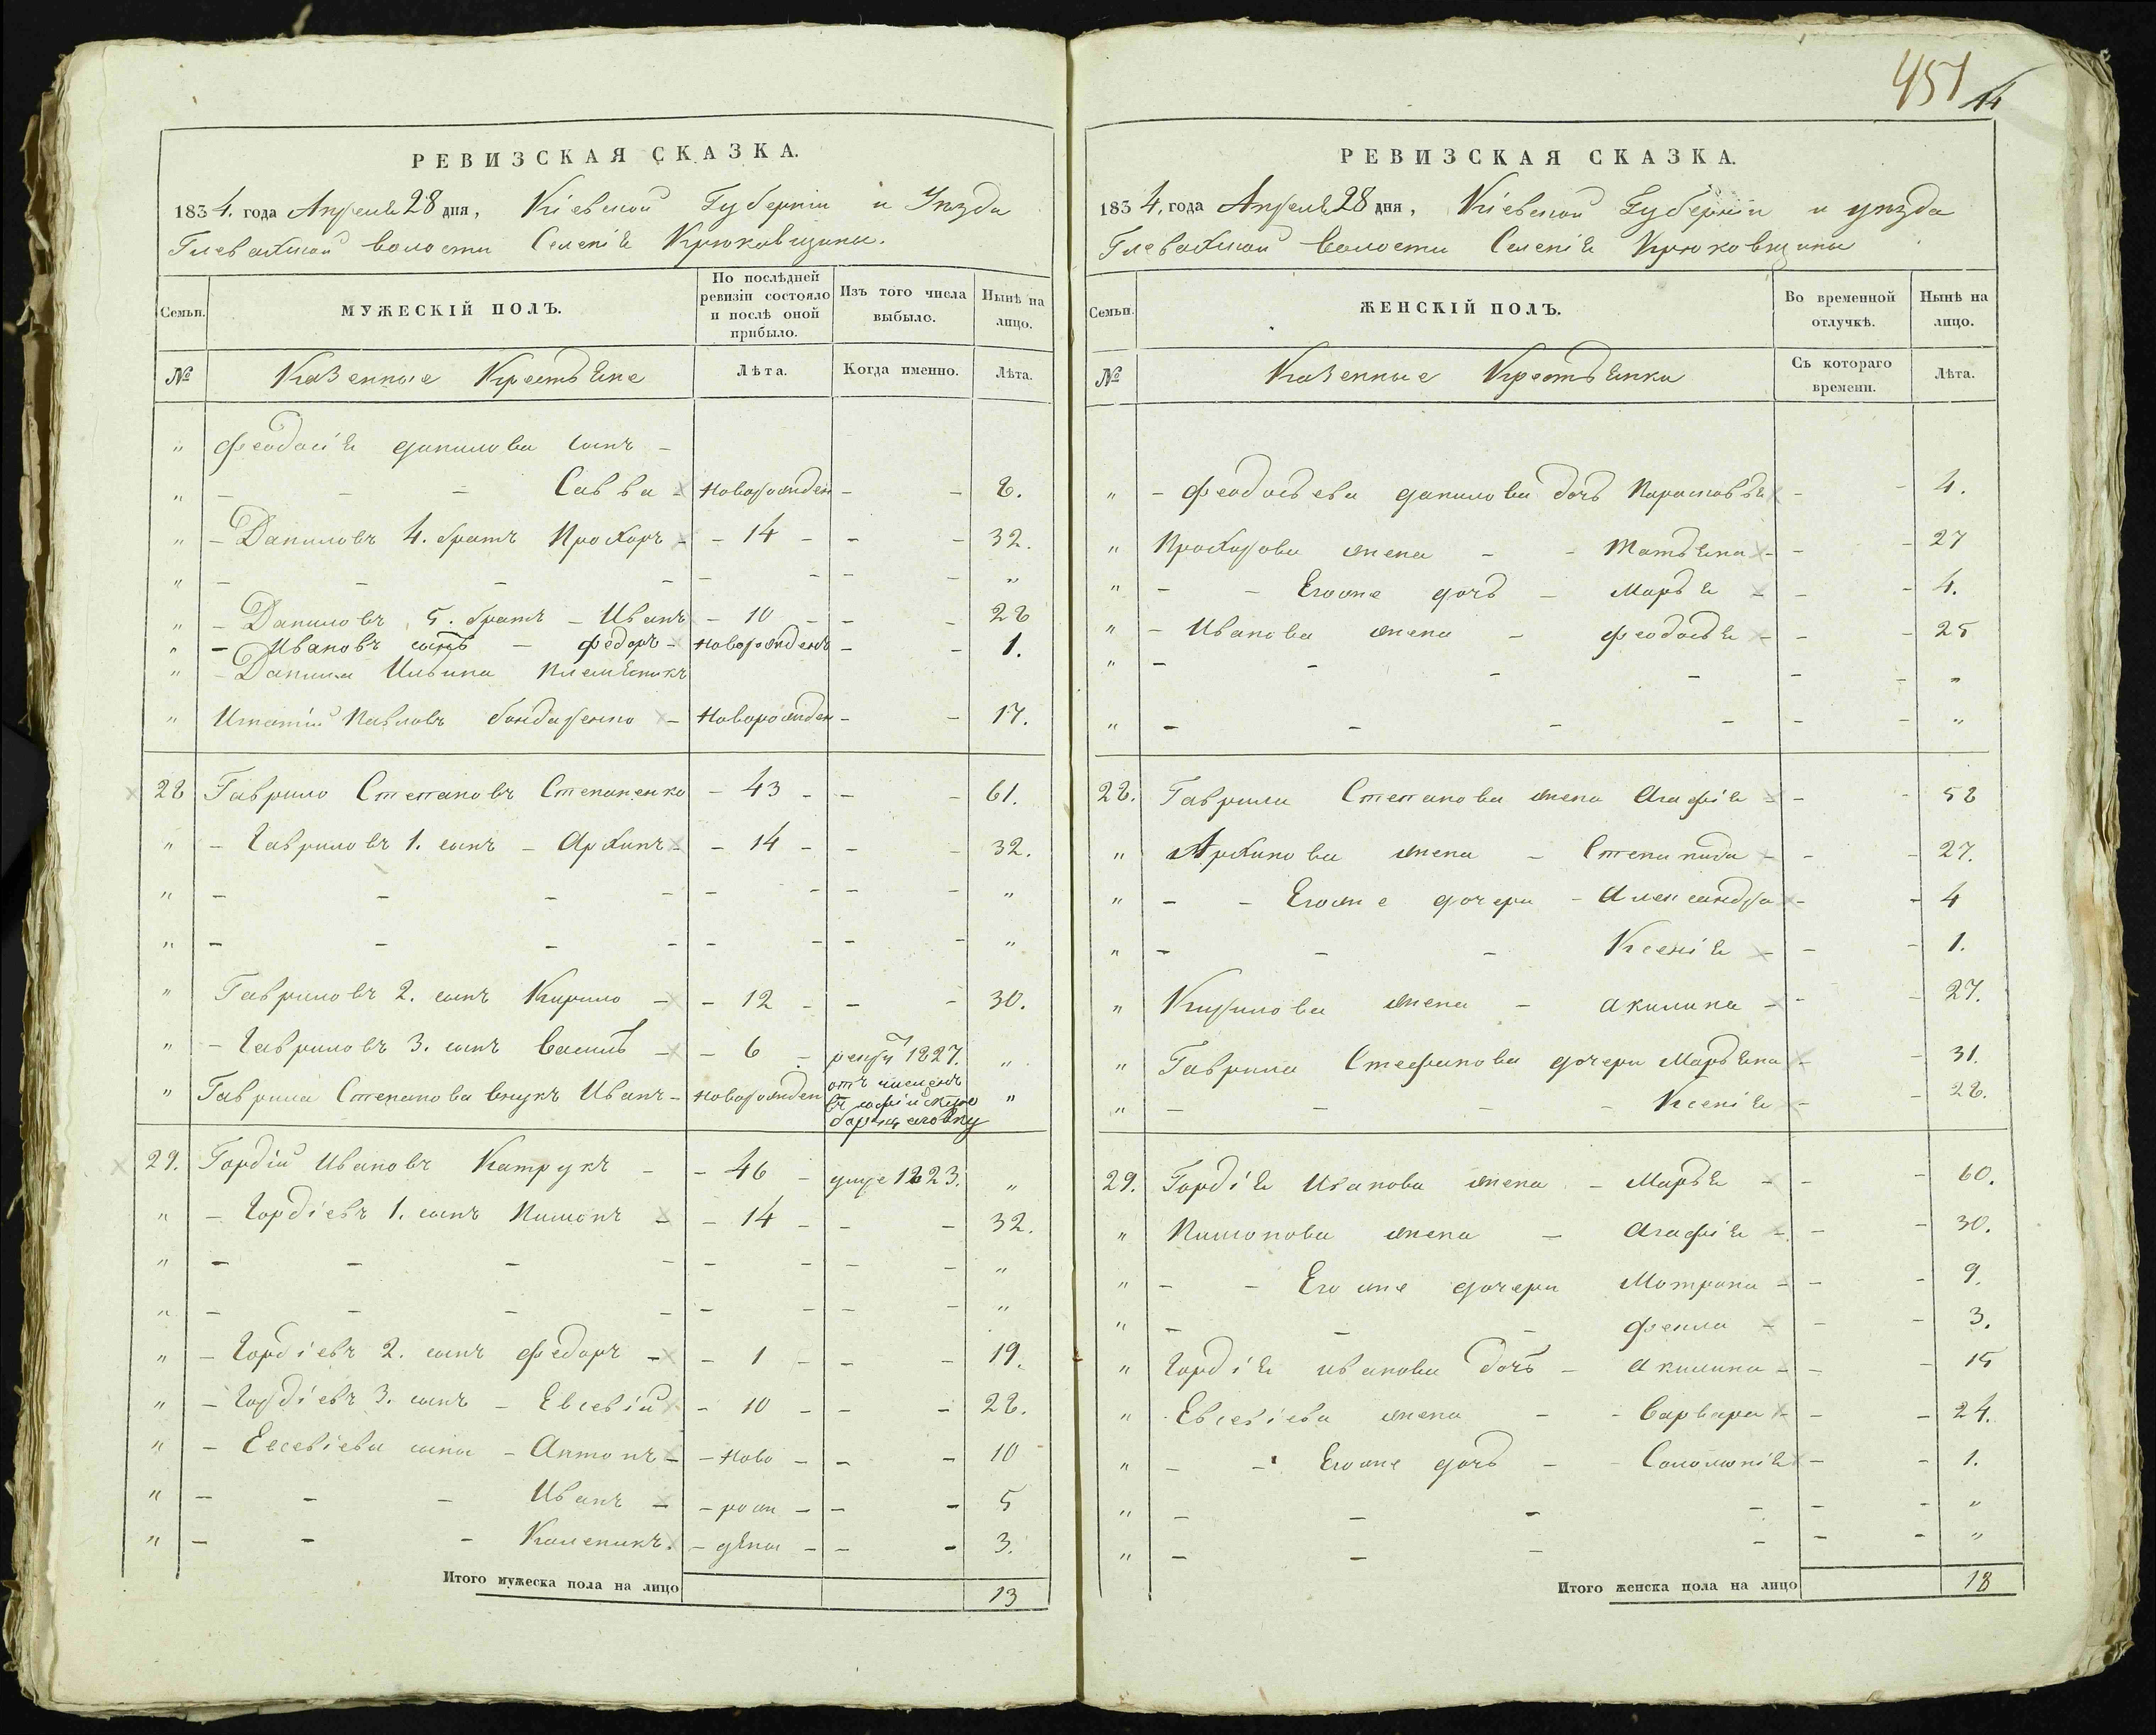 451 14
РЕВИЗСКАЯ СКАЗКА.
1834. года Апреля 28 дня, Кіевской Губерніи и Уезда
волости Селенія Крюковщины.
Семьи. МУЖЕСКІЙ ПОЛЪ. По послѣдней ревизіи состояло и послѣ оной прибыло. Изъ того числа выбыло. Нынѣ на лицо.
№ Казенные Крестьяне Лѣта. Когда именно. Лѣта.
" Феодосія данилова сынъ -
" - - - Савва - Новорожден - - 8.
" - Даниловъ 4. братъ Прохоръ - - 14 - - - 32.
" - - - - - - - - "
" - Даниловъ 5. братъ - Иванъ - 10 - - - 28
" - Ивановъ сынъ - Федоръ - Новорожденъ - - 1.
" - Данила Ильина племяникъ
" Игнатій Павловъ бондаренко - Новорожден - - 17.
28 Гаврило Степановъ Степаненко - 43 - - - 61.
" - Гавриловъ 1. сынъ - Архипъ - - 14 - - - 32.
" - - - - - - - - "
" - - - - - - - - "
" Гавриловъ 2. сынъ Кирило - - 12 - - - 30.
" - Гавриловъ 3. сынъ Василь - - 6 - 1827. "
" Гаврила Степанова внукъ Иванъ - Новорожден отчисленъ въ "
29. Гордій Ивановъ Катрукъ - - 46 - умре 1823. "
" - Гордіевъ 1. сынъ Пимонъ - - 14 - - - 32.
" - - - - - - - - "
" - - - - - - - - "
" - Гордіевъ 2. сынъ Федоръ - - 1 - - - 19.
" - Гордіевъ 3. сынъ - Евсевій - 10 - - - 28.
" - Евсевіева сыны - Антонъ - - Ново - - - 10
" - - - Иванъ - - рож - - - 5
" - - - Каленикъ. - дены - - - 3.
Итого мужеска пола на лицо 13
РЕВИЗСКАЯ СКАЗКА.
1834. года Апреля 28 дня, Кіевской Губерніи и уезда
Волости Селенія Крюковщины
Семьи. ЖЕНСКІЙ ПОЛЪ. Во временной отлучкѣ. Нынѣ на лицо.
№ Казенные Крестьянки Съ котораго времени. Лѣта.
" - Феодосьева данилова дочь - - 4.
" Прохорова жена - - Татьяна - - - 27
" - - Егоже дочь - Марья - - - 4.
" - Иванова жена - феодосья - - - 25
" - - - - - - "
" - - - - - - "
28. Гаврила Степанова жена Агафія - - - 58
" Архипова жена - Степанида - - - 27.
" - - Егоже дочери - Александра - - 4
" - - - Ксенія - - - 1.
" Кирилова жена - акилина - - - 27.
" Гаврила Стефанова дочери Марьяна - - 31.
" - - - - Ксенія - - 28.
29. Гордія Иванова жена - Марья - - - 60.
" Пимонова жена - Агафія - - - 30.
" - - Егоже дочери Мотрона - - - 9.
" - - - Фекла - - - 3.
" Гордія иванова дочь - акилина - - 15
" Евсевіева жена - - Варвара - - - 24.
" - - Егоже дочь - - Соломонія - - 1.
" - - - - - - "
" - - - - - - "
Итого женска пола на лицо 18